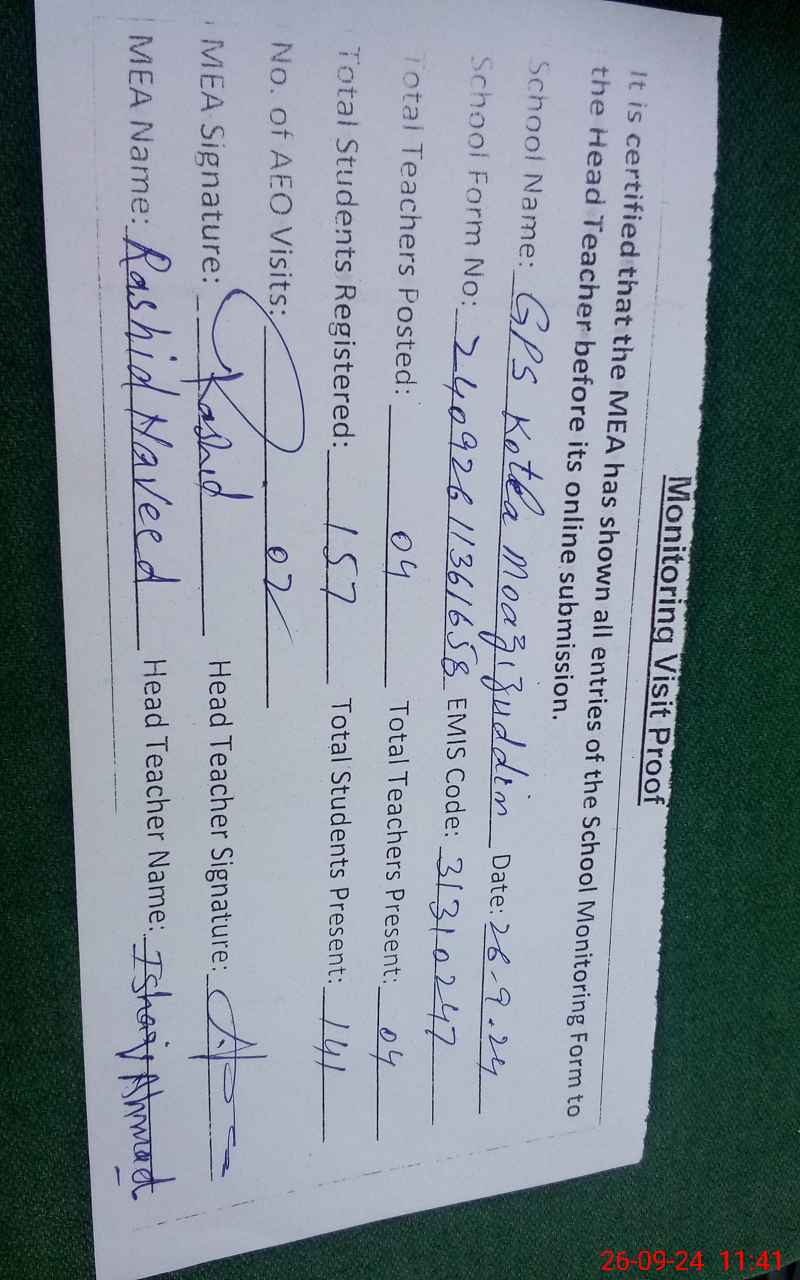 Monitoring Visit Proof
It is certified that the MEA has shown all entries of the School Monitoring Form to
the Head Teacher before its online submission.
School Name: GPS Kotla Moazizuddin Date: 26-9.24
School Form No: 24092611361658 EMIS Code: 31310247
Total Teachers Posted: 04 Total Teachers Present: 04
Total Students Registered: 157 Total Students Present: 141
No. of AEO Visits: 02
MEA Signature: Rashid Head Teacher Signature:
MEA Name: Rashid Naveed Head Teacher Name: Ishaq Ahmad
26-09-24 11:41